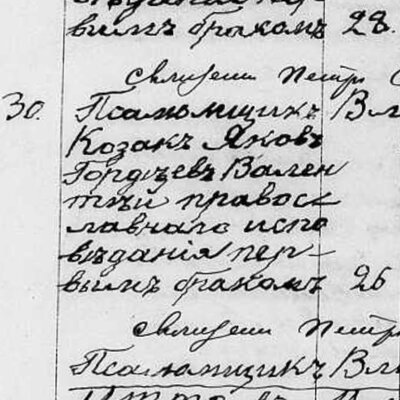 вымъ бракомъ 28.
священ Петръ
30. Псаломщикъ Вл
Козакъ Яковъ
Гордѣевъ Вален
тій правос
лавнаго испо
вѣданія пер-
вымъ бракомъ 26
священ Петръ
Псаломщикъ Вл